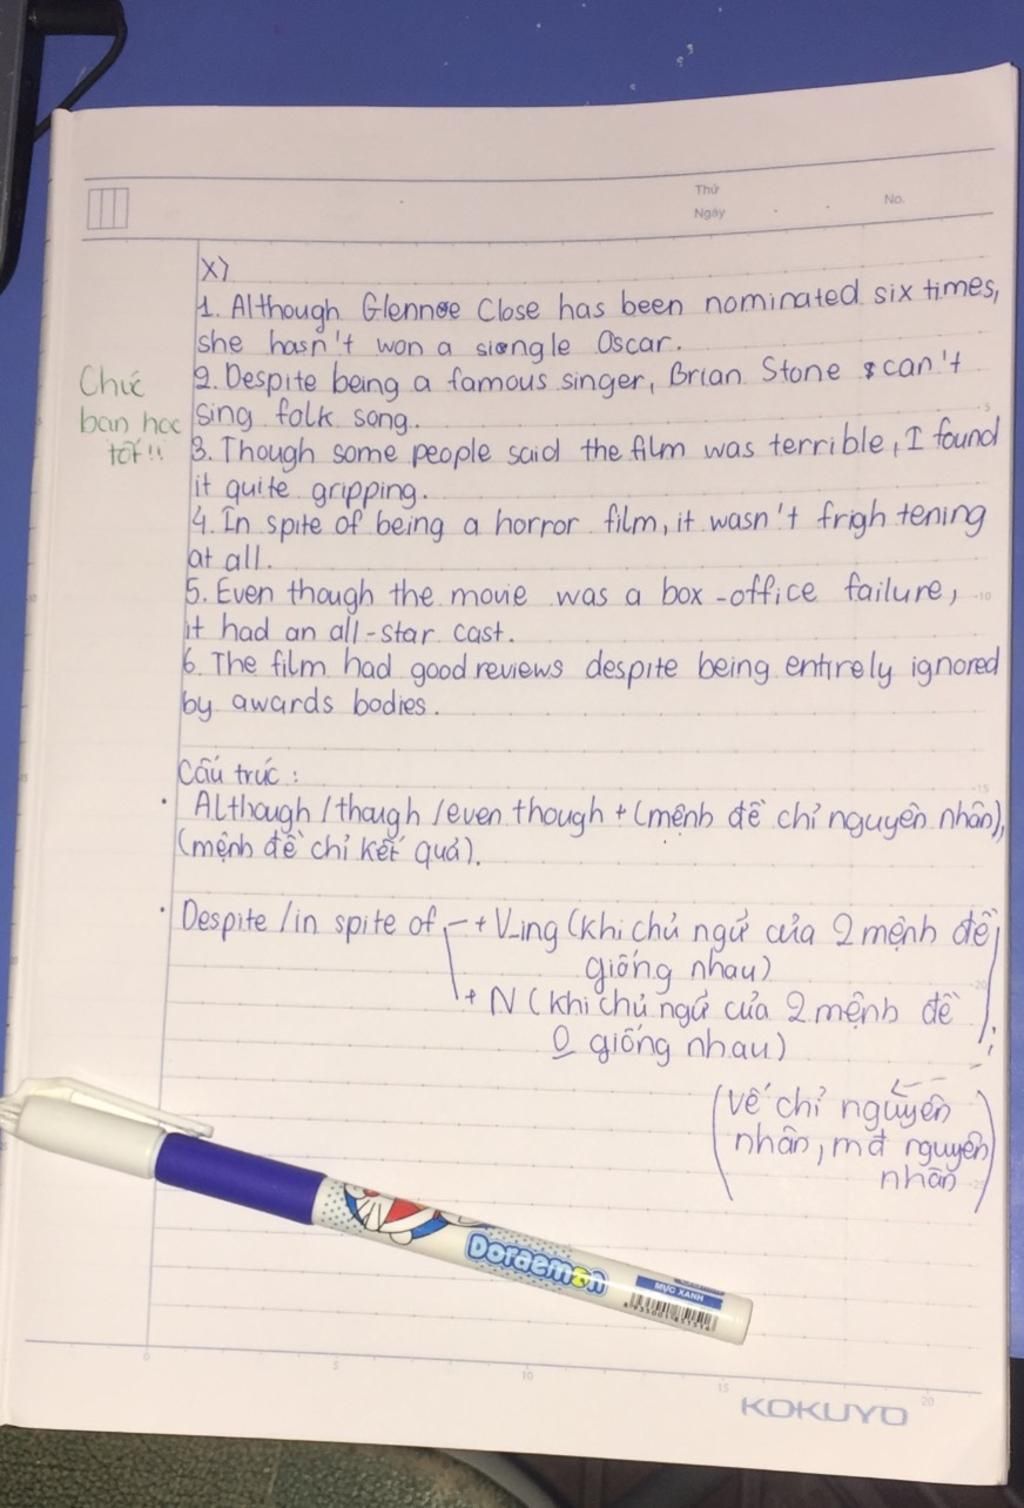 Thứ
Ngày
No.
X)
1. Although Glennse Close has been nominated six times,
she hasn't won a siongle Oscar.
Chúc
bạn học
tốt!!
2. Despite being a famous singer, Brian Stone can't
sing folk song.
3. Though some people said the film was terrible, I found
it quite gripping.
4. In spite of being a horror film, it wasn't frightening
at all.
5. Even though the movie was a box-office failure,
it had an all-star cast.
6. The film had good reviews despite being entirely ignored
by awards bodies.
Cấu trúc:
• Although/though/even though + (mệnh đề chỉ nguyên nhân),
(mệnh đề chỉ kết quả).
• Despite/in spite of + V-ing (khi chủ ngữ của 2 mệnh đề
giống nhau)
+ N (khi chủ ngữ của 2 mệnh đề
0 giống nhau)
(vế chỉ nguyên
nhân, mđ nguyên
nhân)
Doraemon
MỰC XANH
0 5 10 15 20
KOKUYO